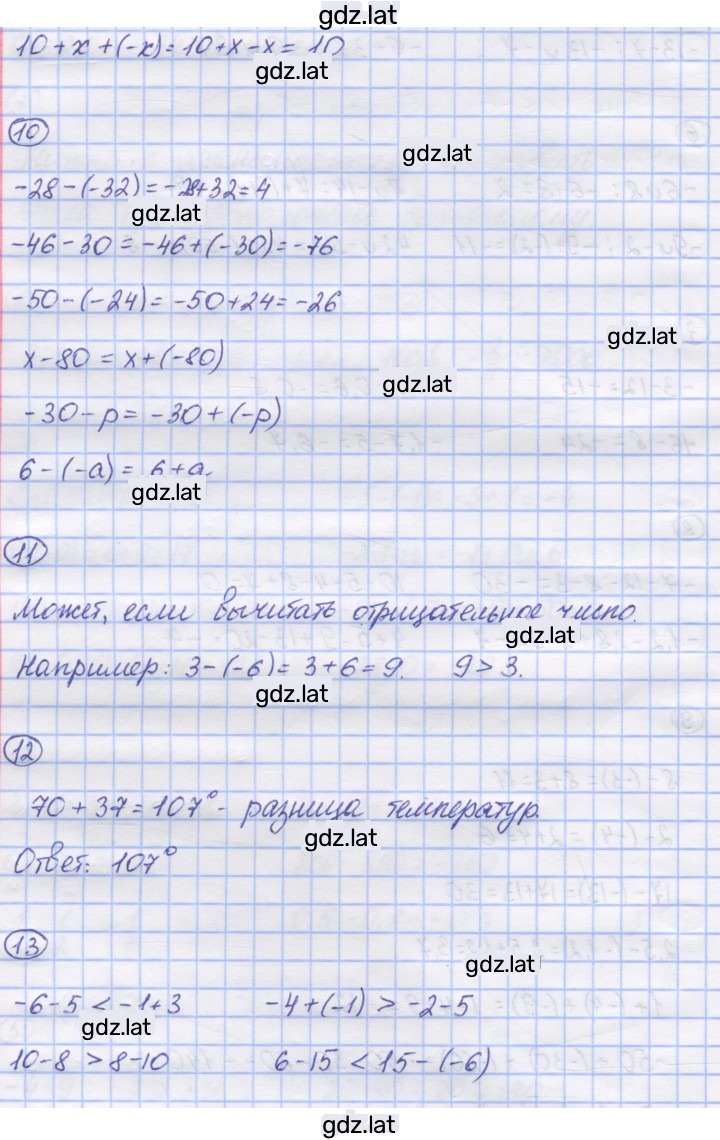 gdz.lat
10 + x + (-x) = 10 + x - x = 10
gdz.lat
10
gdz.lat
-28 - (-32) = -28 + 32 = 4
gdz.lat
-46 - 30 = -46 + (-30) = -76
-50 - (-24) = -50 + 24 = -26
gdz.lat
x - 80 = x + (-80)
gdz.lat
-30 - p = -30 + (-p)
6 - (-a) = 6 + a.
gdz.lat
11
Может, если вычитать отрицательное число.
gdz.lat
Например: 3 - (-6) = 3 + 6 = 9. 9 > 3.
gdz.lat
12
70 + 37 = 107° - разница температур.
gdz.lat
Ответ: 107°
13
gdz.lat
-6 - 5 < -1 + 3 -4 + (-1) > -2 - 5
gdz.lat
10 - 8 > 8 - 10 6 - 15 < 15 - (-6)
gdz.lat